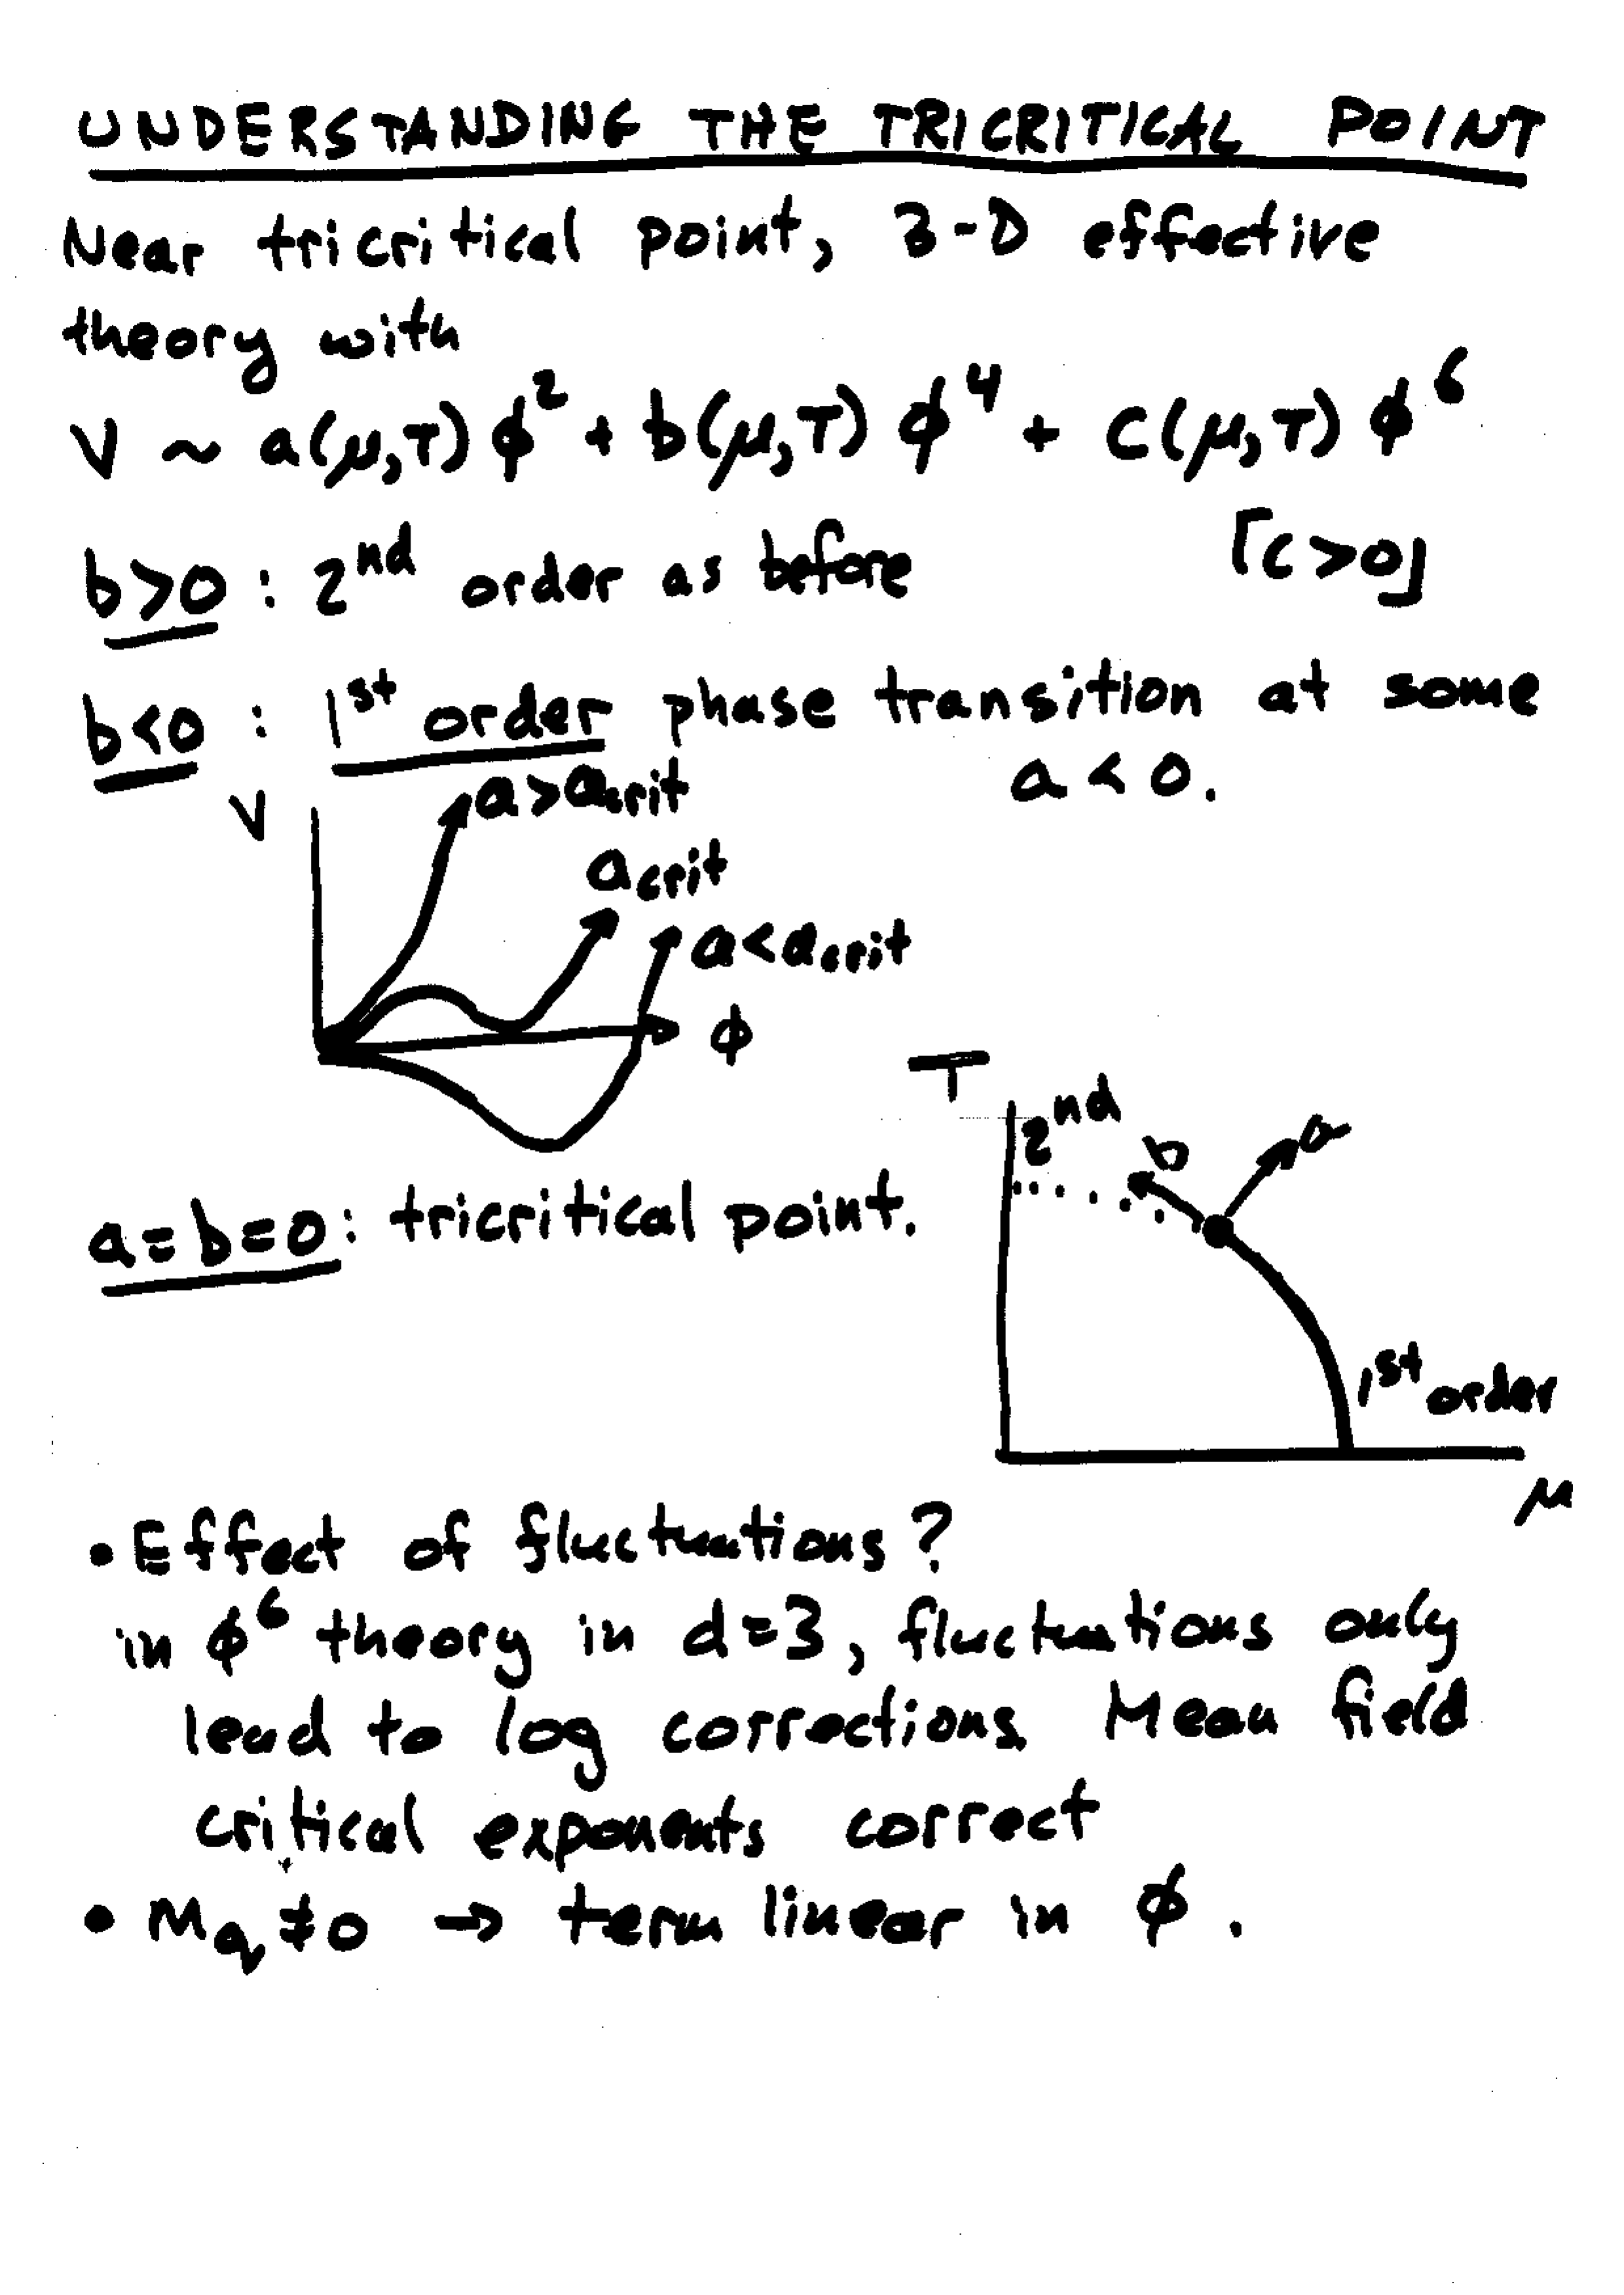 UNDERSTANDING THE TRICRITICAL POINT
Near tricritical point, 3-D effective
theory with
V ~ a(μ,T) ϕ² + b(μ,T) ϕ⁴ + c(μ,T) ϕ⁶
b>0 : 2nd order as before [c>0]
b<0 : 1st order phase transition at some
a < 0.
V
a>acrit
acrit
a<acrit
ϕ
T
2nd
b
a
a=b=0: tricritical point.
1st order
μ
• Effect of fluctuations?
in ϕ⁶ theory in d=3, fluctuations only
lead to log corrections. Mean field
critical exponents correct
• Mq≠0 → term linear in ϕ.